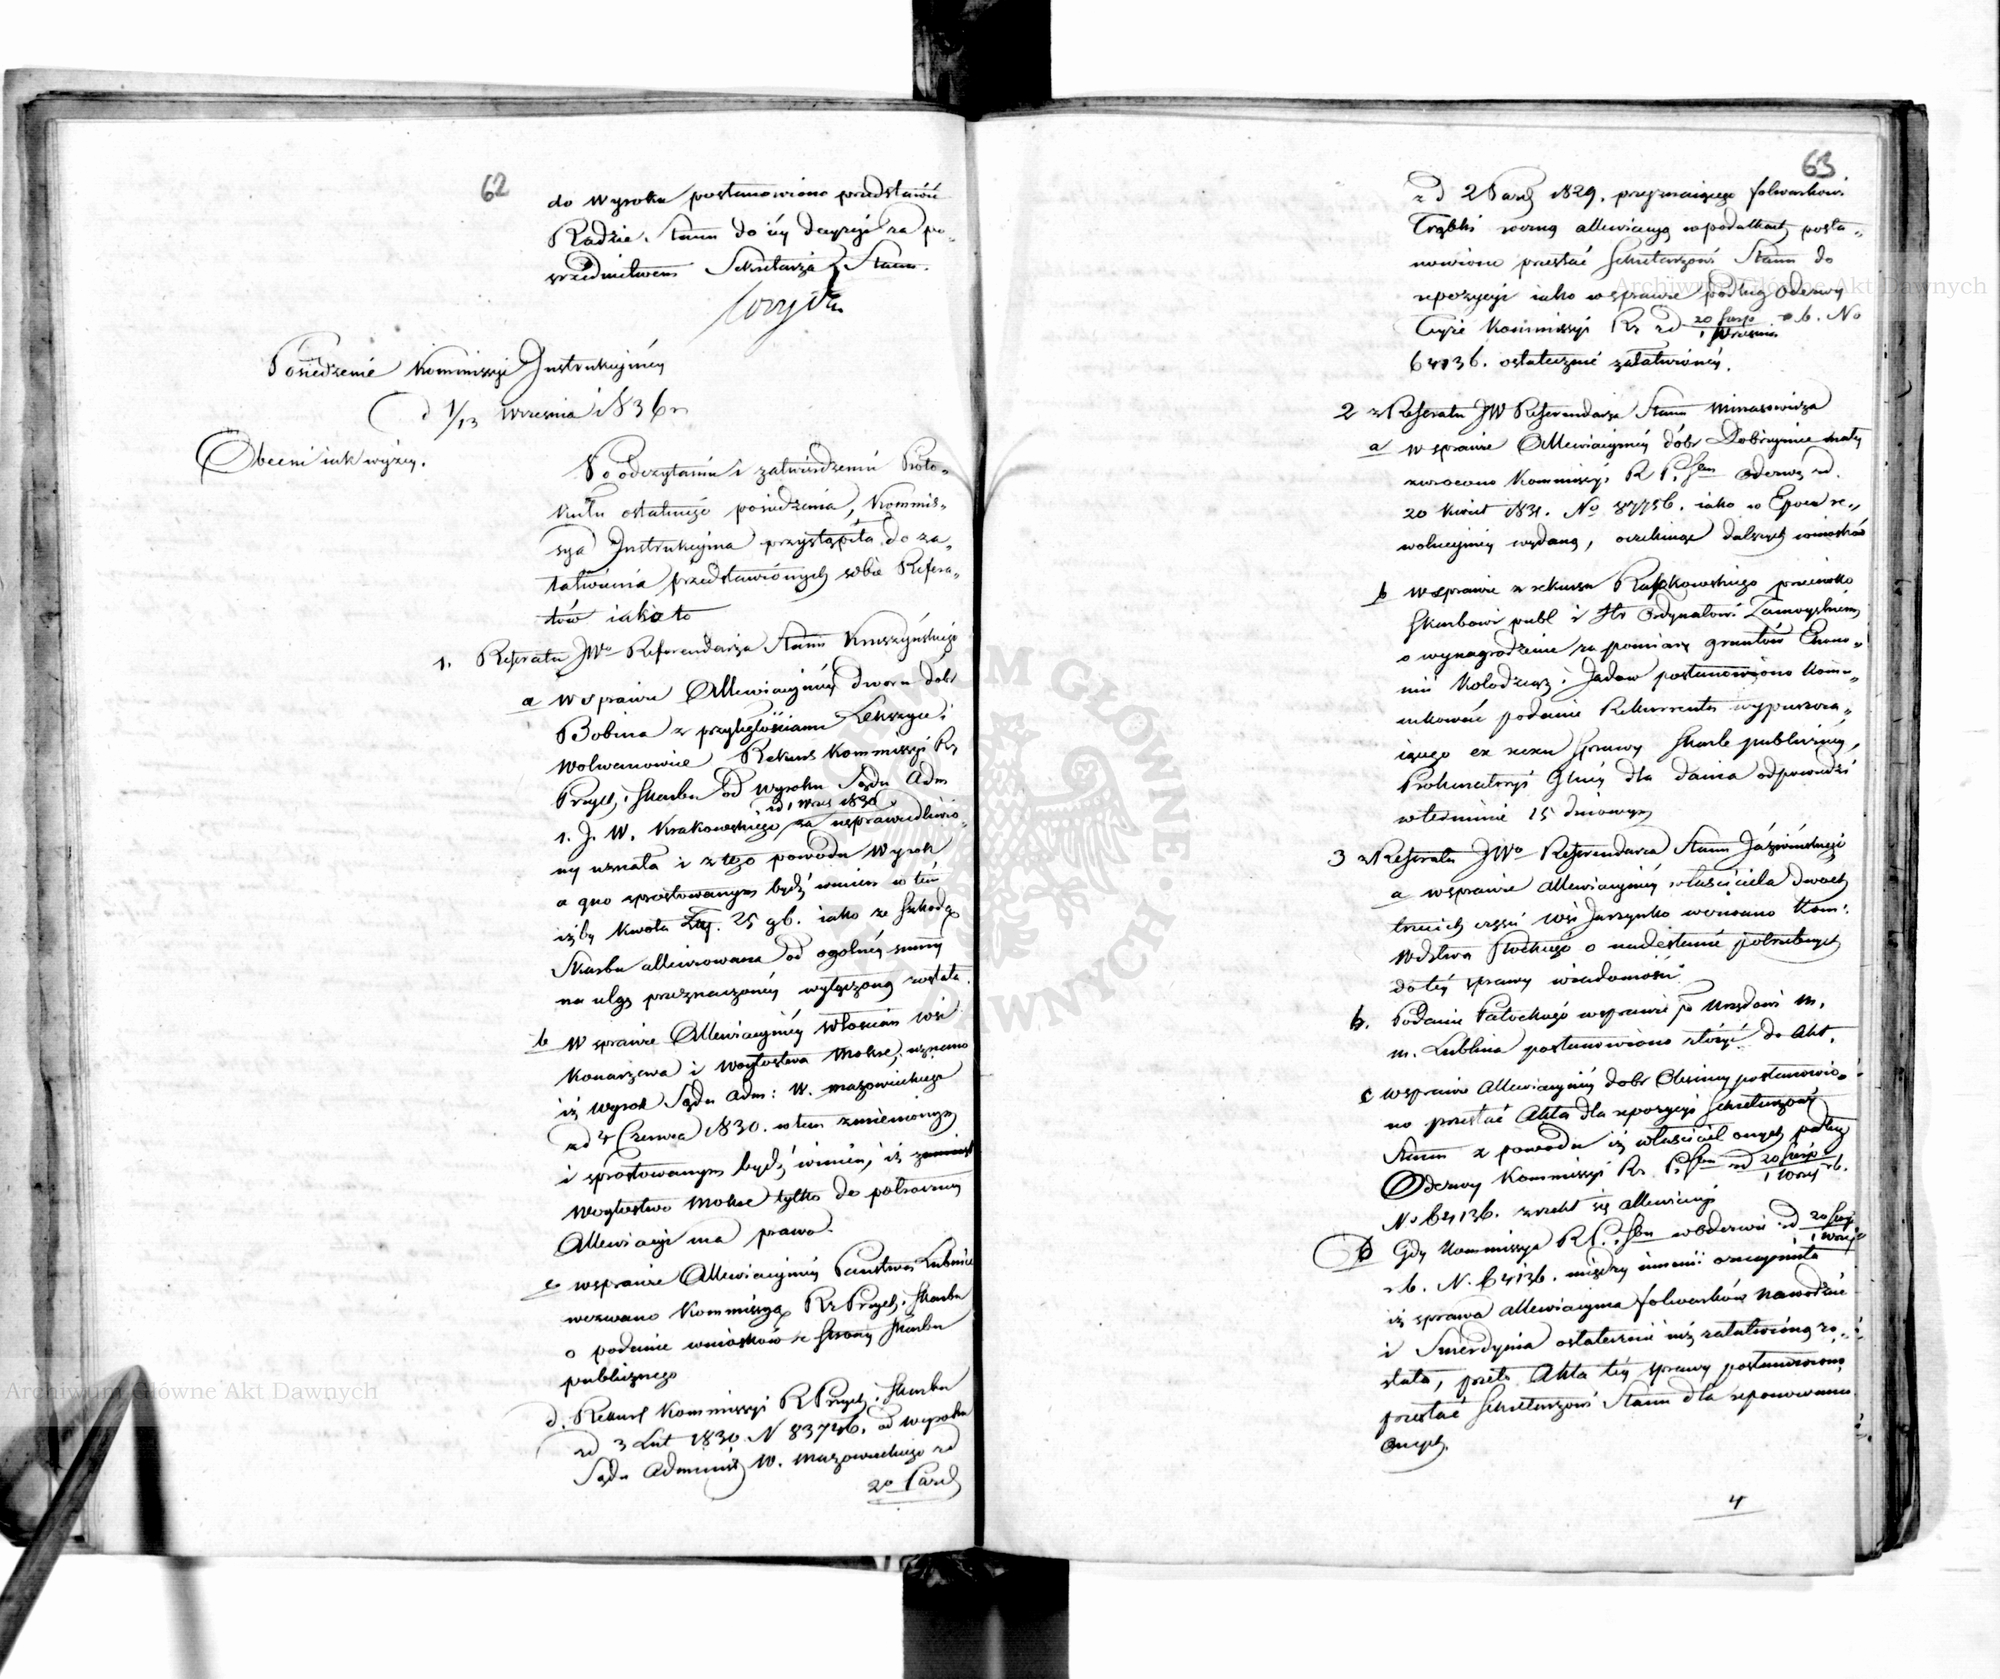 62
do Wyroku postanowiono przedstawić
Radzie Stanu do iéy decyzyi za po„
średnictwem Sekretarza Stanu.
Posiedzenie Kommissyi Instrukcyinéy
d 1/13 Września 1836 r
Obecni iak wyżey.
Po odczytaniu i zatwierdzeniu Proto„
kułu ostatniego posiedzenia, Kommis„
sya Instrukcyina przystąpiła do za„
łatwienia przedstawionych sobie Refera„
tów iako to
1. Referatu JWo Referendarza Stanu Kruszyńskiego
a w sprawie Allewiacyinéy dworu dóbr
Bobina z przyległościami Lekszyce i
Wolwanowice Rekurs Kommissyi Rz
Przych. i Skarbu od wyroku Sądu Adm
zd 1 Wrześ 1830
1. J. W. Krakowskiego za usprawiedliwio„
ny uznała i z tego powodu Wyrok
a quo sprostowanym bydź winien w tem
iżby kwota Złp. 25 g 6. iako ze szkodą
Skarbu allewiowana od ogólnéy summy
na ulgę przeznaczonéy wyłączoną została.
b w sprawie Allewiacyinéy Włościan wsi
Konarzewa i Woytostwa Mokre, uznano
iż wyrok Sądu Adm: W. Mazowieckiego
zd 4 Czerwca 1830. w tem zmienionym
i sprostowanym bydź winien, iż
Woytostwo Mokre tylko do połowiczney
Allewiacyi ma prawo.
c w sprawie Allewiacyinéy Państwa Łubnice
wezwano Kommissyą Rz Przych. i Skarbu
o podanie wniosków ze strony Skarbu
publicznego
d. Rekurs Kommissyi R Przych. i Skarbu
zd 3 Lut 1830 N 83746. od wyroku
Sądu Administ W. Mazowieckiego zd
20 Paźd
63
z d 2 Paźd 1829. przyznaiącego folwarkowi
Trąbki roczną allewiacyą w podatkach posta„
nowiono przesłać Sekretarzowi Stanu do
repozycyi iako w sprawie podług Odezwy
Teyże Kommissyi Rz zd 20 Sierp / 1 Września r b. No
64136. ostatecznie załatwionéy.
2 z Referatu JW Referendarza Stanu Minasowicza
a w sprawie Allewiacyinéy dóbr Dobrzynice małey
zwrócono Kommissyi R P. i Sbu odezwę zd.
20 Kwiet 1831. No 87756. iako w Epoce re„
wolucyinéy wydaną, oczekuiąc dalszych wniosków
b w sprawie z rekursu Rutkowskiego przeciwko
Skarbowi publ i Hr Ordynatowi Zamoyskiemu
o wynagrodzenie za pomiarę gruntów Ekono„
mii Kołodziąż i Jadów postanowiono komu„
nikować podanie Rekurrenta wypuszcza„
iącego ex nexu sprawy Skarb publiczny,
Prokuratoryi Glnéy dla dania odpowiedzi
w terminie 15 dniowym
3 z Referatu JWo Referendarza Stanu Jaźwińskiego
a w sprawie allewiacyinéy właściciela dwóch
trzecich części wsi Jurzynko wezwano Kom:
Wdztwa Płockiego o nadesłanie potrzebnych
do téy sprawy wiadomości
b. Podanie Patockiego w sprawie po Urzędowi M.
m. Lublina postanowiono złożyć do Akt.
c w sprawie allewiacyinéy dobr Olesiny postanowio„
no przesłać Akta dla repozycyi Sekretarzowi
Stanu z powodu iż właściciel onych podług
Odezwy Kommissyi Rz. P. i Sbu zd 20 Sierp / 1 Wrześ r b.
No 64136. zrzekł się allewiacyi
D Gdy Kommissya R P. i Sbu w odezwie zd 20 Sierp / 1 Wrześ
r b. N. 64136. między innemi oznaymiła
iż sprawa allewiacyina folwarków Nawodzice
i Smerdyna ostatecznie iuż załatwioną zo„
stała, przeto Akta téy sprawy postanowiono
przesłać Sekretarzowi Stanu dla reponowania
onych.
4
Archiwum Główne Akt Dawnych
Archiwum Główne Akt Dawnych
ARCHIWUM GŁÓWNE AKT DAWNYCH